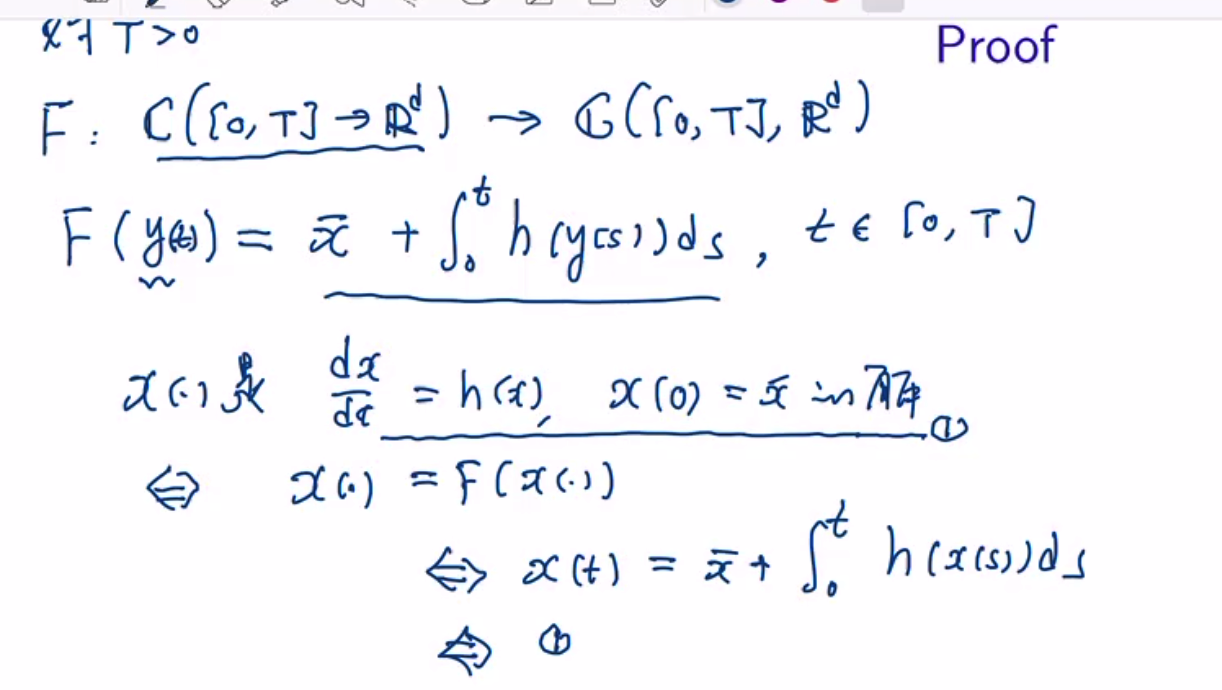 Proof
对 T > 0
F : C([0, T] → ℝᵈ) → C([0, T], ℝᵈ)
F(y(t)) = x̄ + ∫₀ᵗ h(y(s))ds , t ∈ [0, T]
x(·) 是 dx/dt = h(x), x(0) = x̄ 的解 ①
⇔ x(·) = F(x(·))
⇔ x(t) = x̄ + ∫₀ᵗ h(x(s))ds
⇔ ①